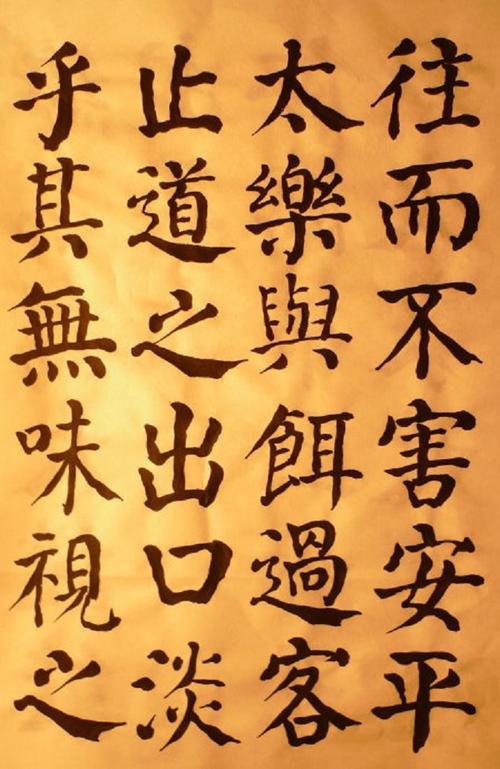 往而不害安平
太樂與餌過客
止道之出口淡
乎其無味視之